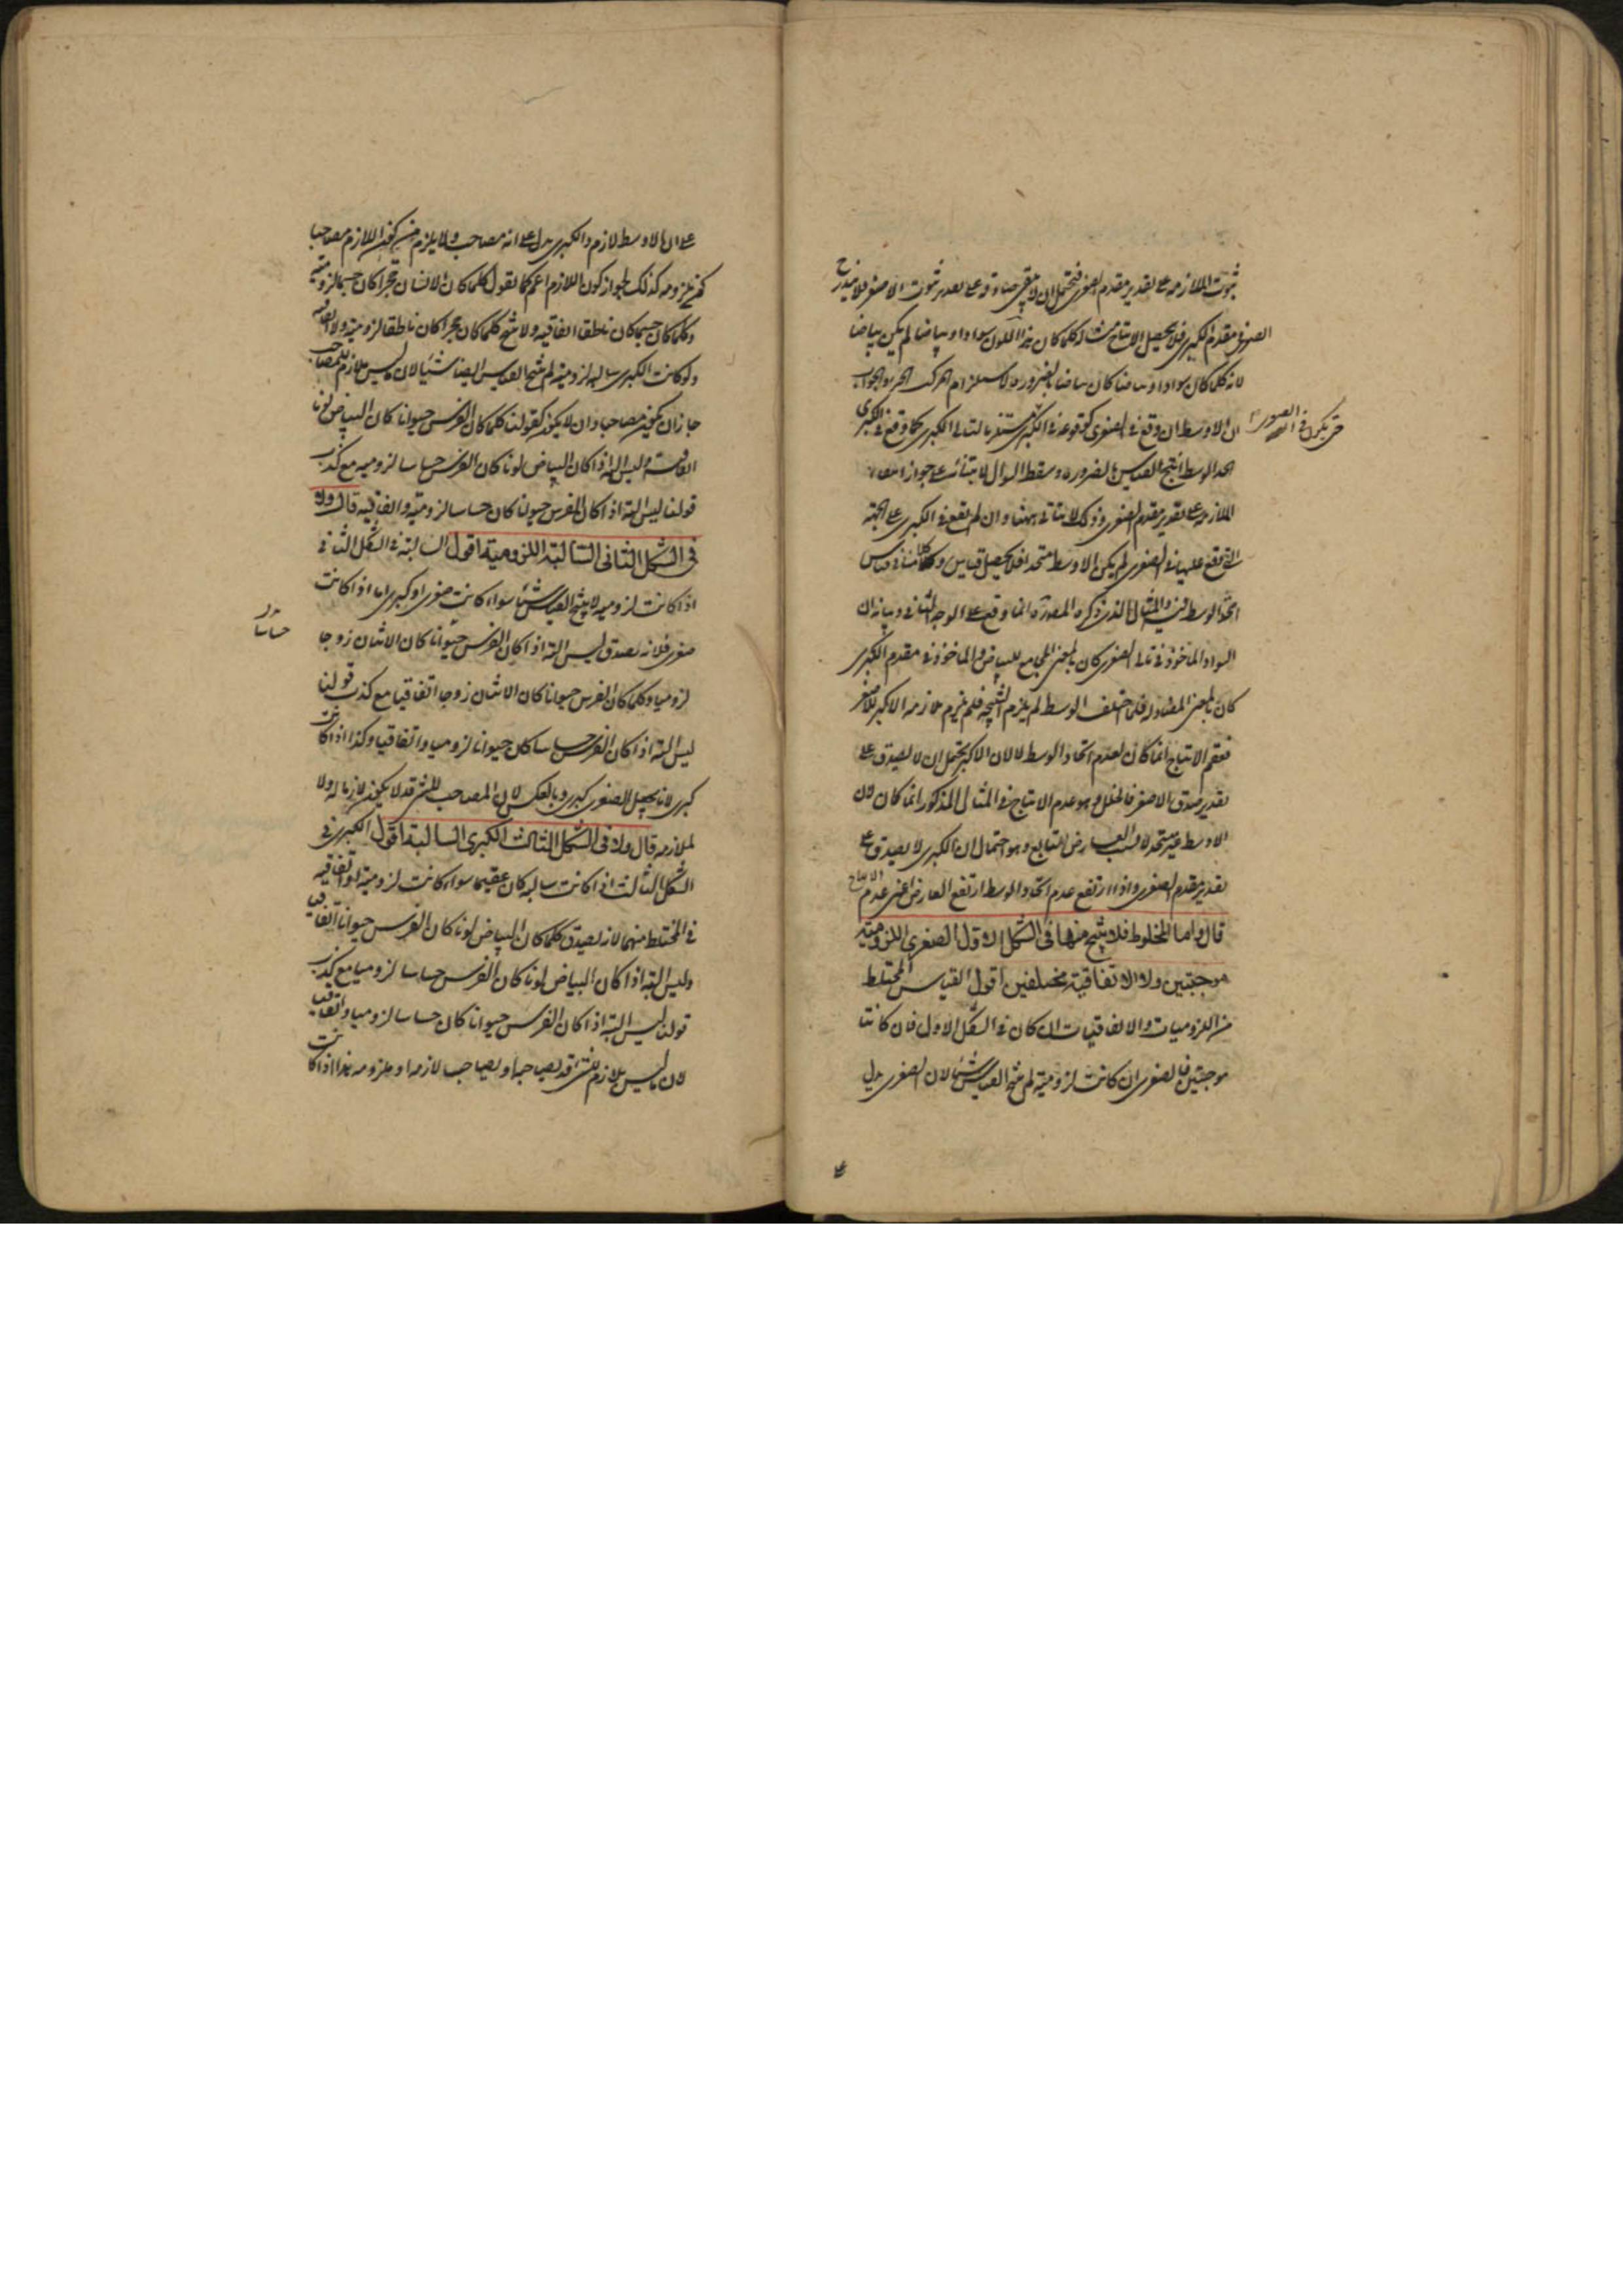 ثبوت الملازمة على تقدير مقدم الصغرى فيحتمل ان لا يبقى صادقة على تقدير ثبوت الاصغر فلا يندرج
الصغرى مقدم الكبرى فلا يحصل الانتاج مثاله كلما كان هذا اللون سوادا وبياضا لم يكن بياضا
لانه كلما كان سوادا وبياضا كان بياضا بالضرورة لاستلزام المركب الجزء والجواب
ان الاوسط ان وقع في الصغرى كوقوعه في الكبرى بالتالى الكبرى كما وقع في الكبرى
اتحد الوسط انتج القياس بالضرورة وسقط السؤال لابتنائه على جواز انتفاء
الملازمة على تقدير مقدم الصغرى وذلك لا يتاتى ههنا وان لم يقع في الكبرى على الجهة
التي وقع عليها في الصغرى لم يكن الاوسط متحدا فلا يحصل قياس وكلامنا في قياس
اتحد الوسط فيه والمثال الذي ذكره المصدرة انما وقع على الوجه الثاني وبيانه ان
السواد الماخوذ في تالى الصغرى كان بالمعنى المجامع للبياض والماخوذ في مقدم الكبرى
كان بالمعنى المضاد له فلما اختلف الوسط لم يلزم النتيجة فلم يلزم ملازمة الاكبر للاصغر
فعقم الانتاج انما كان لعدم اتحاد الوسط لا لان الاكبر يحتمل ان لا يصدق على
تقدير صدق الاصغر فالخلل وهو عدم الانتاج في المثال المذكور انما كان لان
الاوسط غير متحد لا بسبب العارض التابع وهو احتمال ان الكبرى لا يصدق على
تقدير مقدم الصغرى واذا ارتفع عدم اتحاد الوسط ارتفع العارض اعنى عدم الانتاج
قال واما المخلوط فلا ينتج منها في الشكل الاول الصغرى اللزومية
موجبتين ولا الاتفاقية مختلفين اقول القياس المختلط
من اللزوميات والاتفاقيات ان كان في الشكل الاول فان كانتا
موجبتين فالصغرى ان كانت لزومية لم ينتج القياس شيئا لان الصغرى يدل
على
على ان الاوسط لازم والكبرى يدل على انه مصاحب ولا يلزم من كون اللازم مصاحبا
كون ملزومه كذلك لجواز كون اللازم اعم كما نقول كلما كان الانسان حجرا كان جسما لزومية
وكلما كان جسما كان ناطقا اتفاقية ولا ينتج كلما كان حجرا كان ناطقا لزومية ولا اتفاقية
ولو كانت الكبرى سالبة لزومية لم ينتج القياس ايضا شيئا لان ما ليس ملازم للمصاحب
جاز ان يكون مصاحبا وان لا يكون كقولنا كلما كان الفرس حيوانا كان البياض لونا
اتفاقية وليس البتة اذا كان البياض لونا كان الفرس حساسا لزومية مع كذب
قولنا ليس البتة اذا كان الفرس حيوانا كان حساسا لزومية واتفاقية قال ولا
في الشكل الثاني السالبة اللزومية اقول السالبة في الشكل الثاني
اذا كانت لزومية لا ينتج القياس شيئا سواء كانت صغرى او كبرى اما اذا كانت
صغرى فلانه يصدق ليس البتة اذا كان الفرس حيوانا كان الاثنان زوجا
لزوميا وكلما كان الفرس حيوانا كان الاثنان زوجا اتفاقيا مع كذب قولنا
ليس البتة اذا كان الفرس حساسا كان حيوانا لزوميا واتفاقيا وكذا اذا كانت
كبرى لانا يجعل الصغرى كبرى وبالعكس لان المصاحب للشئ قد لا يكون لازما له ولا
لملازمه قال ولا في الشكل الثالث الكبرى السالبة اقول الكبرى في
الشكل الثالث اذا كانت سالبة كان عقيما سواء كانت لزومية او اتفاقية
في المختلط منهما لانه يصدق كلما كان البياض لونا كان الفرس حيوانا اتفاقيا
وليس البتة اذا كان البياض لونا كان الفرس حساسا لزوميا مع كذب
قولنا ليس البتة اذا كان الفرس حيوانا كان حساسا لزوميا واتفاقيا
لان ما ليس بلازم للشئ قد يصاحبه او يصاحب لازمه او ملزومه هذا اذا كانت
حساسا